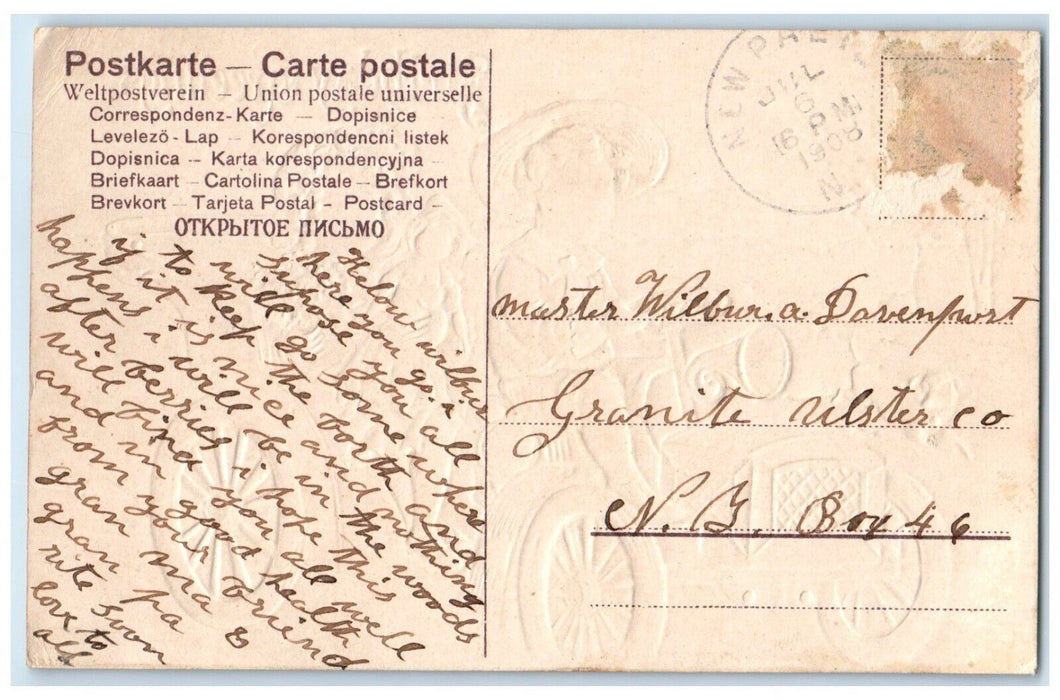 Postkarte – Carte postale
Weltpostverein – Union postale universelle
Correspondenz-Karte – Dopisnice
Levelező-Lap – Korespondencni listek
Dopisnica – Karta korespondencyjna –
Briefkaart – Cartolina Postale – Brefkort
Brevkort – Tarjeta Postal – Postcard –
ОТКРЫТОЕ ПИСЬМО
Helow wilbur
here you go. i
supose you all
wile go some where
to keep the forth and
if it is nice and nothing
happens i will be in the woods
after berries i hope this
will find you all well
and in good health
from your friend
gran ma &
gran pa
rite soon
love to
all
NEW PALTZ
JUL
6
6 PM
1908
N.
master Wilbur. a. Davenport
Granite Ulster co
N. Y. Box 46